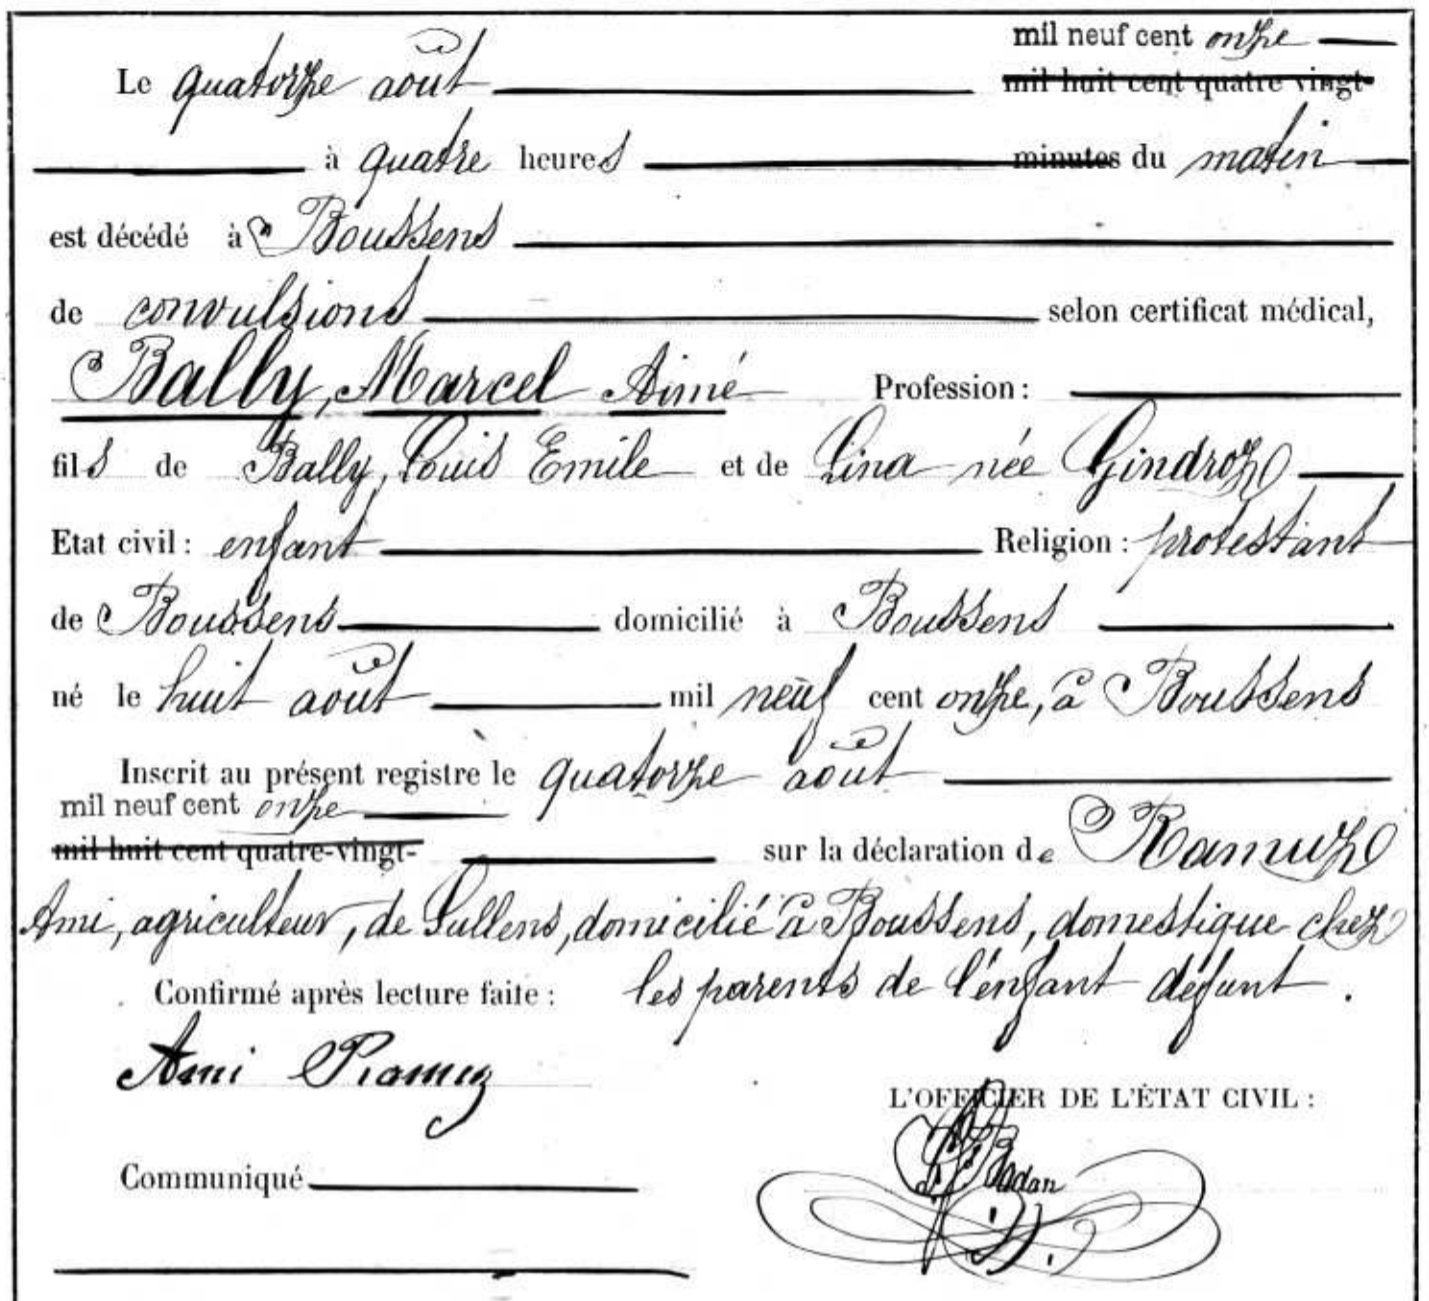 mil neuf cent onze
Le quatorze août mil huit cent quatre vingt-
à quatre heures minutes du matin
est décédé à Boussens
de convulsions selon certificat médical,
Bally, Marcel Aimé Profession :
fils de Bally, Louis Emile et de Lina née Gindroz
Etat civil : enfant Religion : protestant
de Boussens domicilié à Boussens
né le huit août mil neuf cent onze, à Boussens
Inscrit au présent registre le quatorze août
mil neuf cent onze
mil huit cent quatre-vingt- sur la déclaration de Ramuz
Ami, agriculteur, de Sullens, domicilié à Boussens, domestique chez
Confirmé après lecture faite : les parents de l'enfant défunt.
Ami Ramuz
L'OFFICIER DE L'ÉTAT CIVIL :
Badan
Communiqué